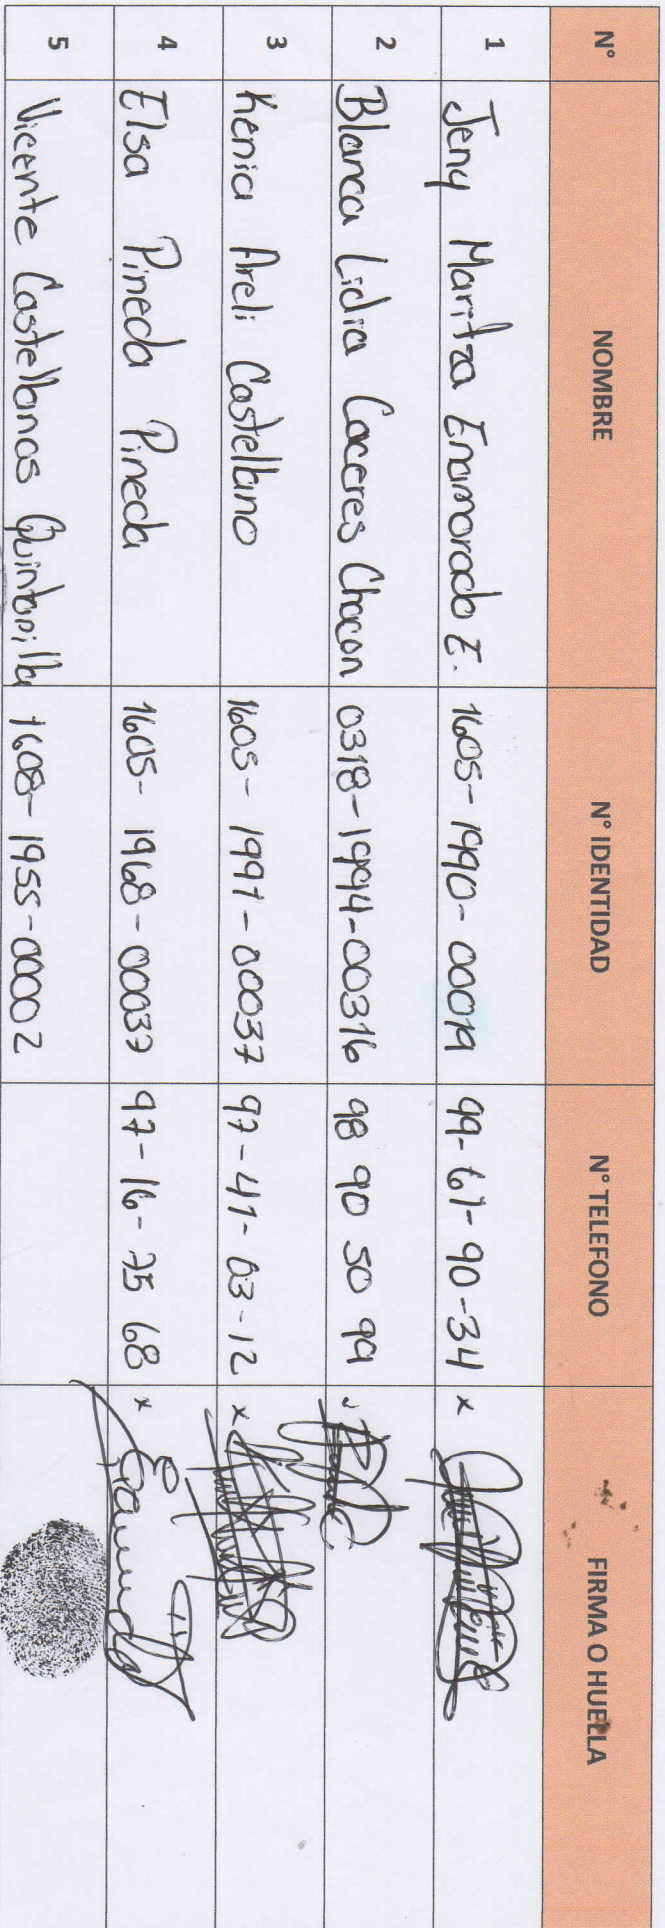 N° NOMBRE N° IDENTIDAD N° TELEFONO FIRMA O HUELLA
1 Jeny Maritza Enamorado E. 1605-1990-00019 99-67-90-34 x
2 Blanca Lidia Caceres Chacon 0318-1994-00316 98 90 50 99
3 Kenia Areli Castellano 1605-1991-00037 97-41-03-12 x
4 Elsa Pineda Pineda 1605-1968-00039 97-16-75 68 x
5 Vicente Castellanos Quintanilla 1608-1955-00002